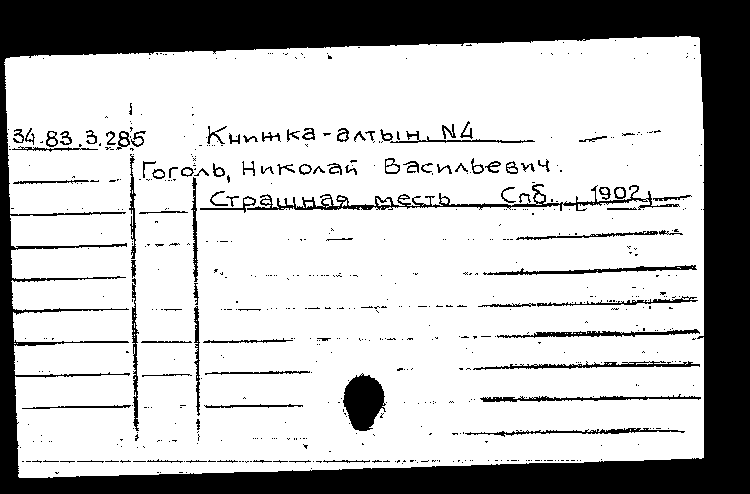 34.83.3.285 Книжка-алтын. N4
Гоголь, Николай Васильевич.
Страшная месть Спб., [1902]